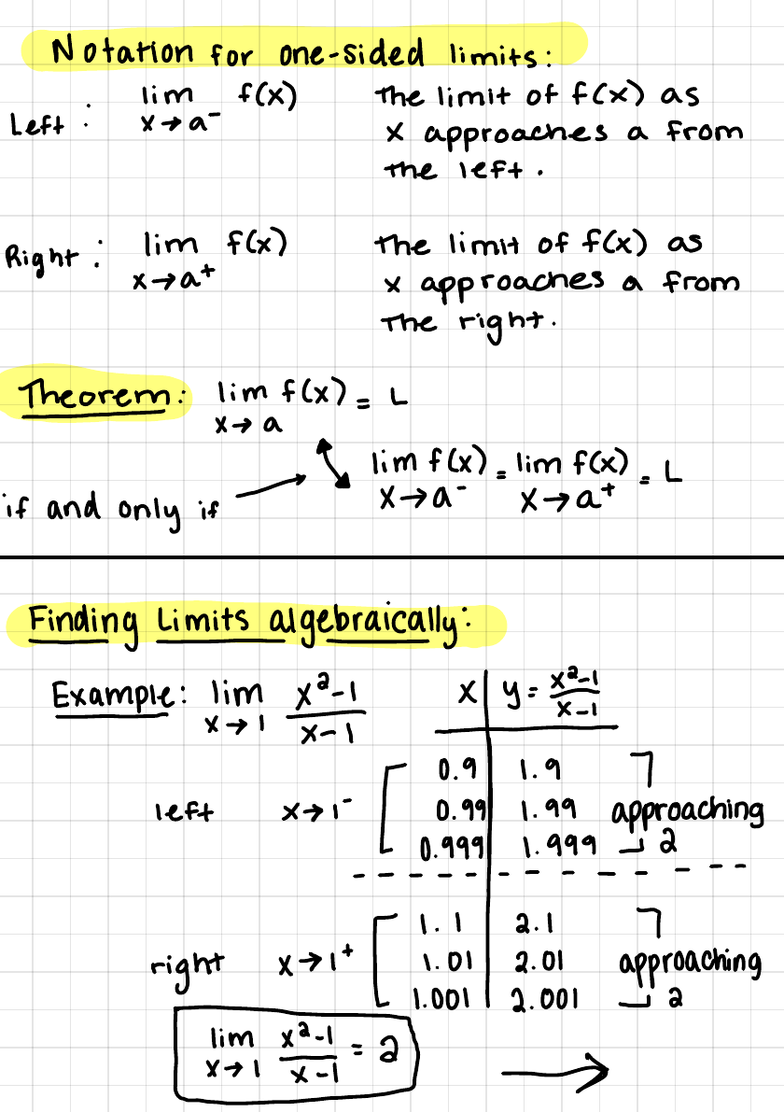 Notation for one-sided limits:
Left: lim x→a⁻ f(x) the limit of f(x) as
x approaches a from
the left.
Right: lim x→a⁺ f(x) the limit of f(x) as
x approaches a from
the right.
Theorem: lim x→a f(x) = L
if and only if → lim x→a⁻ f(x) = lim x→a⁺ f(x) = L
Finding Limits algebraically:
Example: lim x→1 x²-1/x-1 x | y = x²-1/x-1
0.9 1.9
left x→1⁻ 0.99 1.99 approaching
0.999 1.999 2
1.1 2.1
right x→1⁺ 1.01 2.01 approaching
1.001 2.001 2
lim x→1 x²-1/x-1 = 2 →